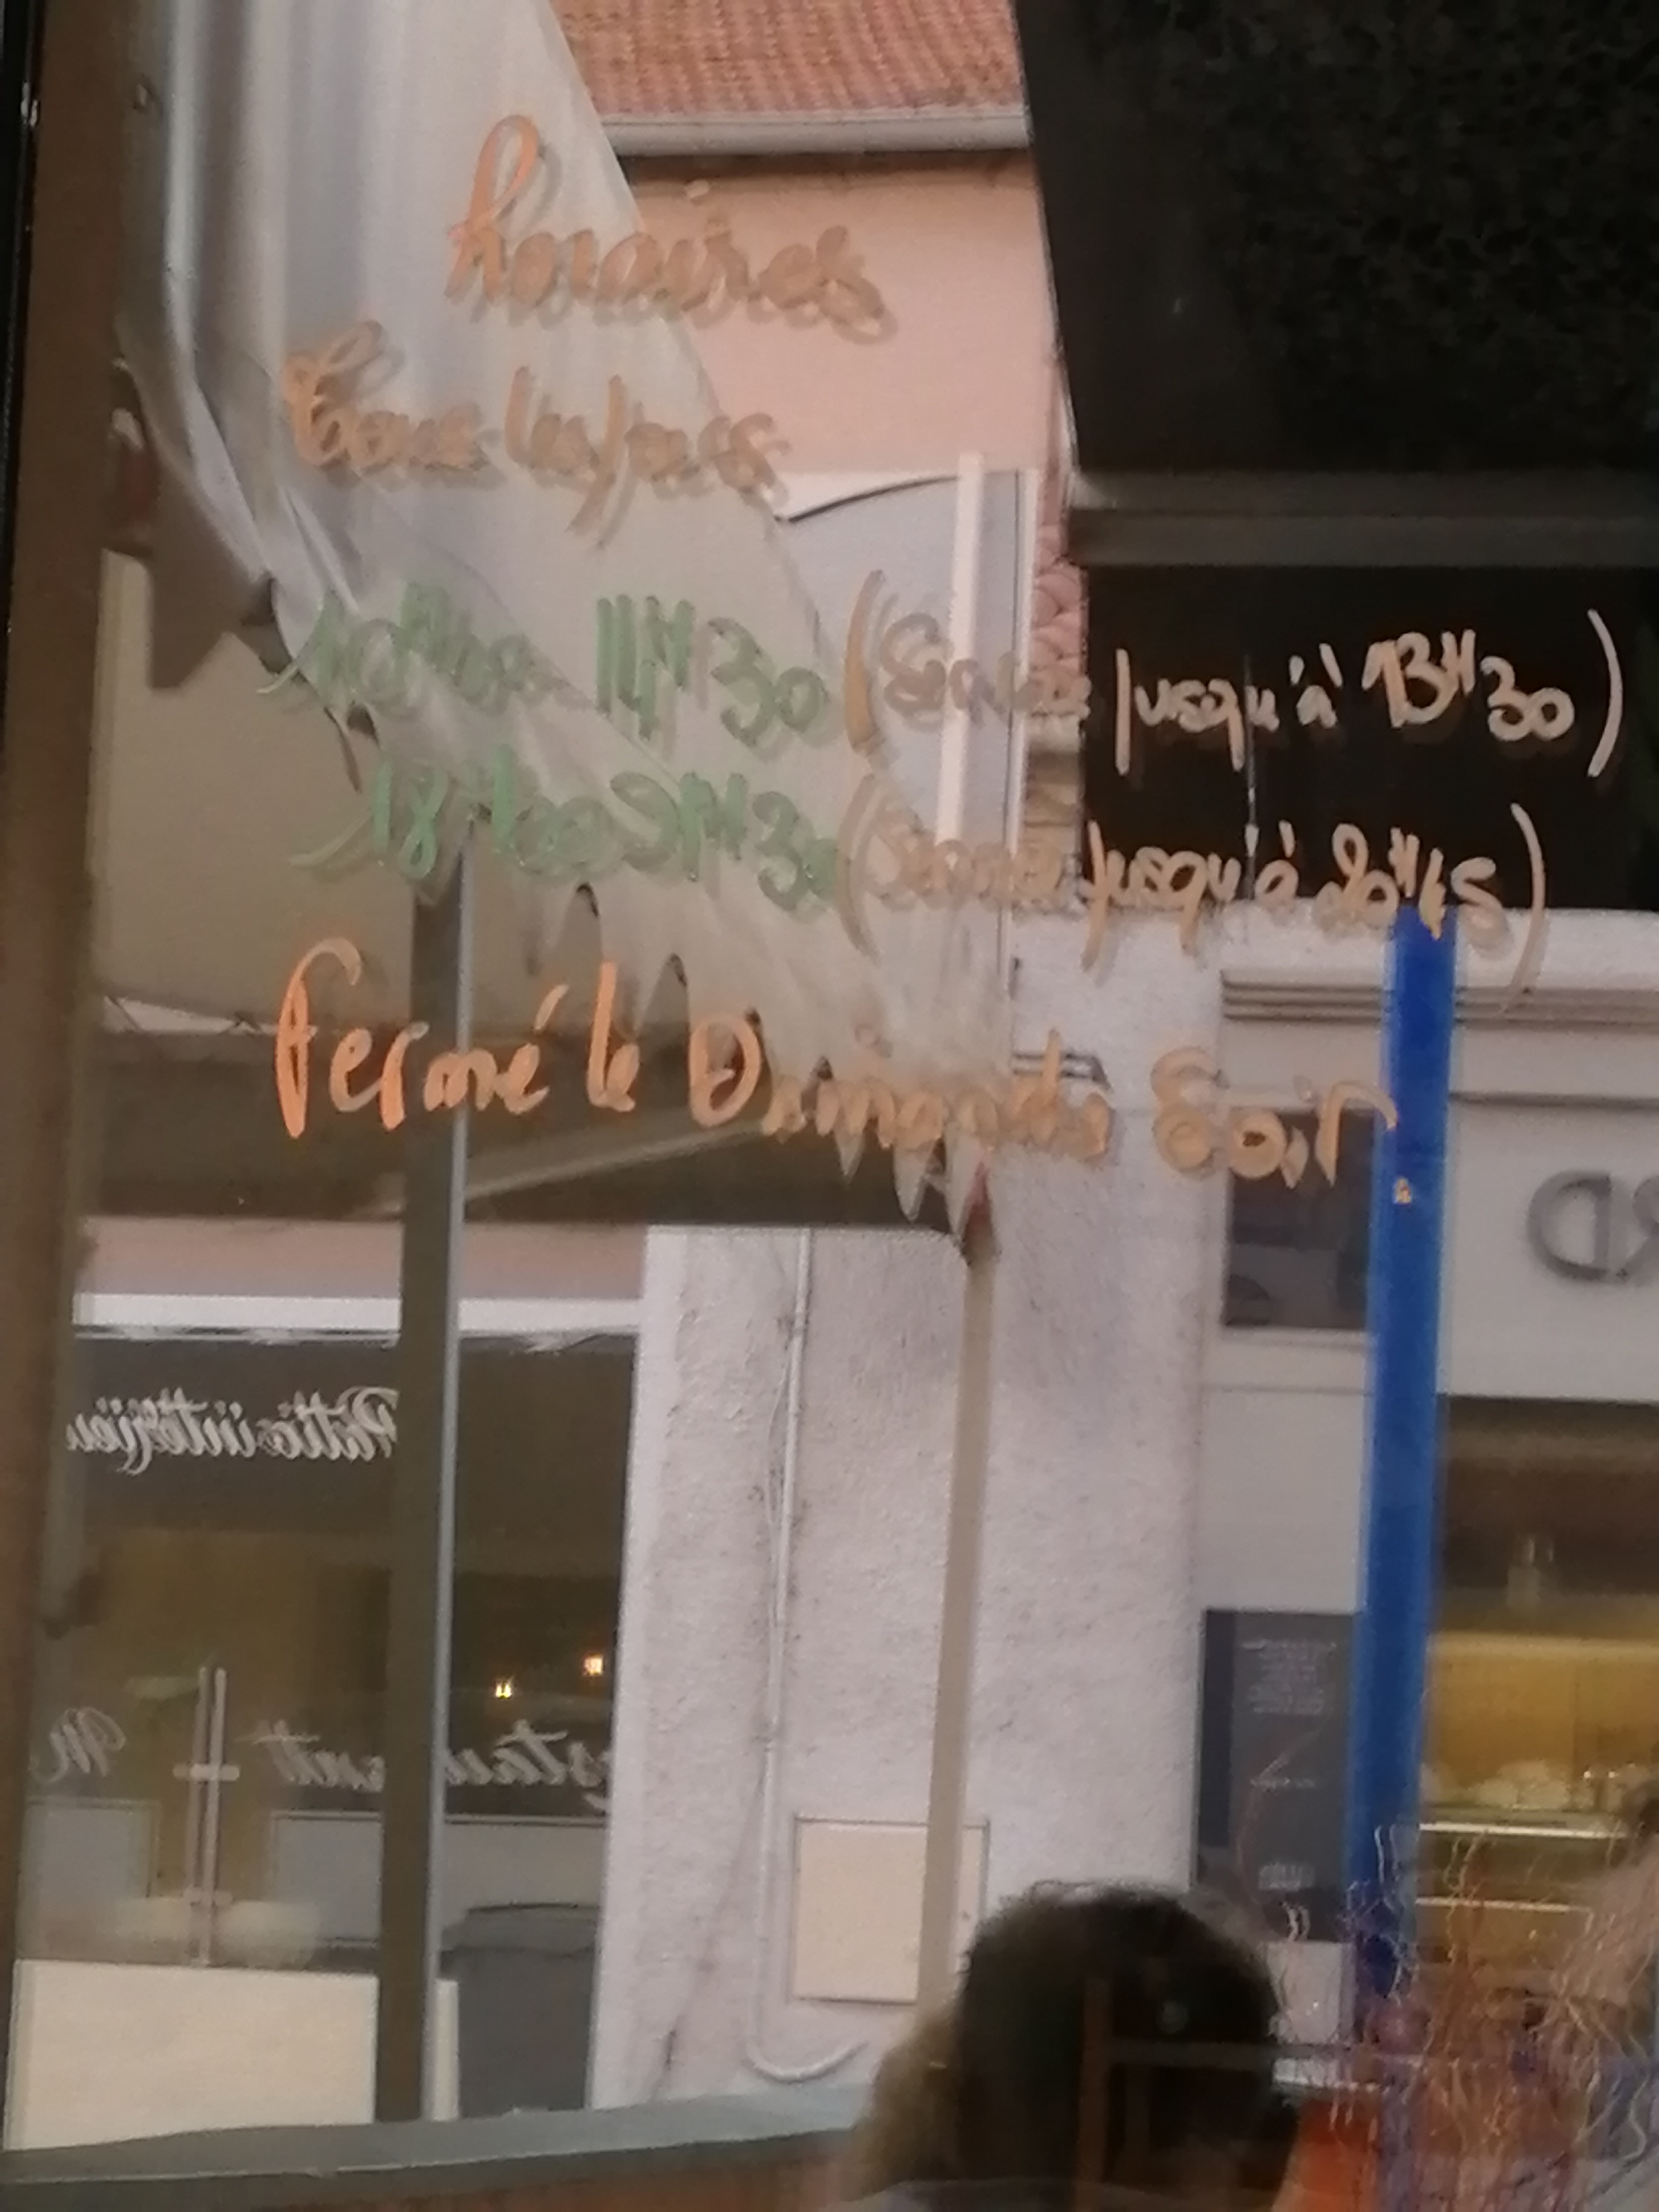 horaires
Tous les jours
10H00 14H30 (Service jusqu'à 13H30)
18H00 21H30 (Service jusqu'à 20H45)
Fermé le Dimanche Soir.
Patio intérieur